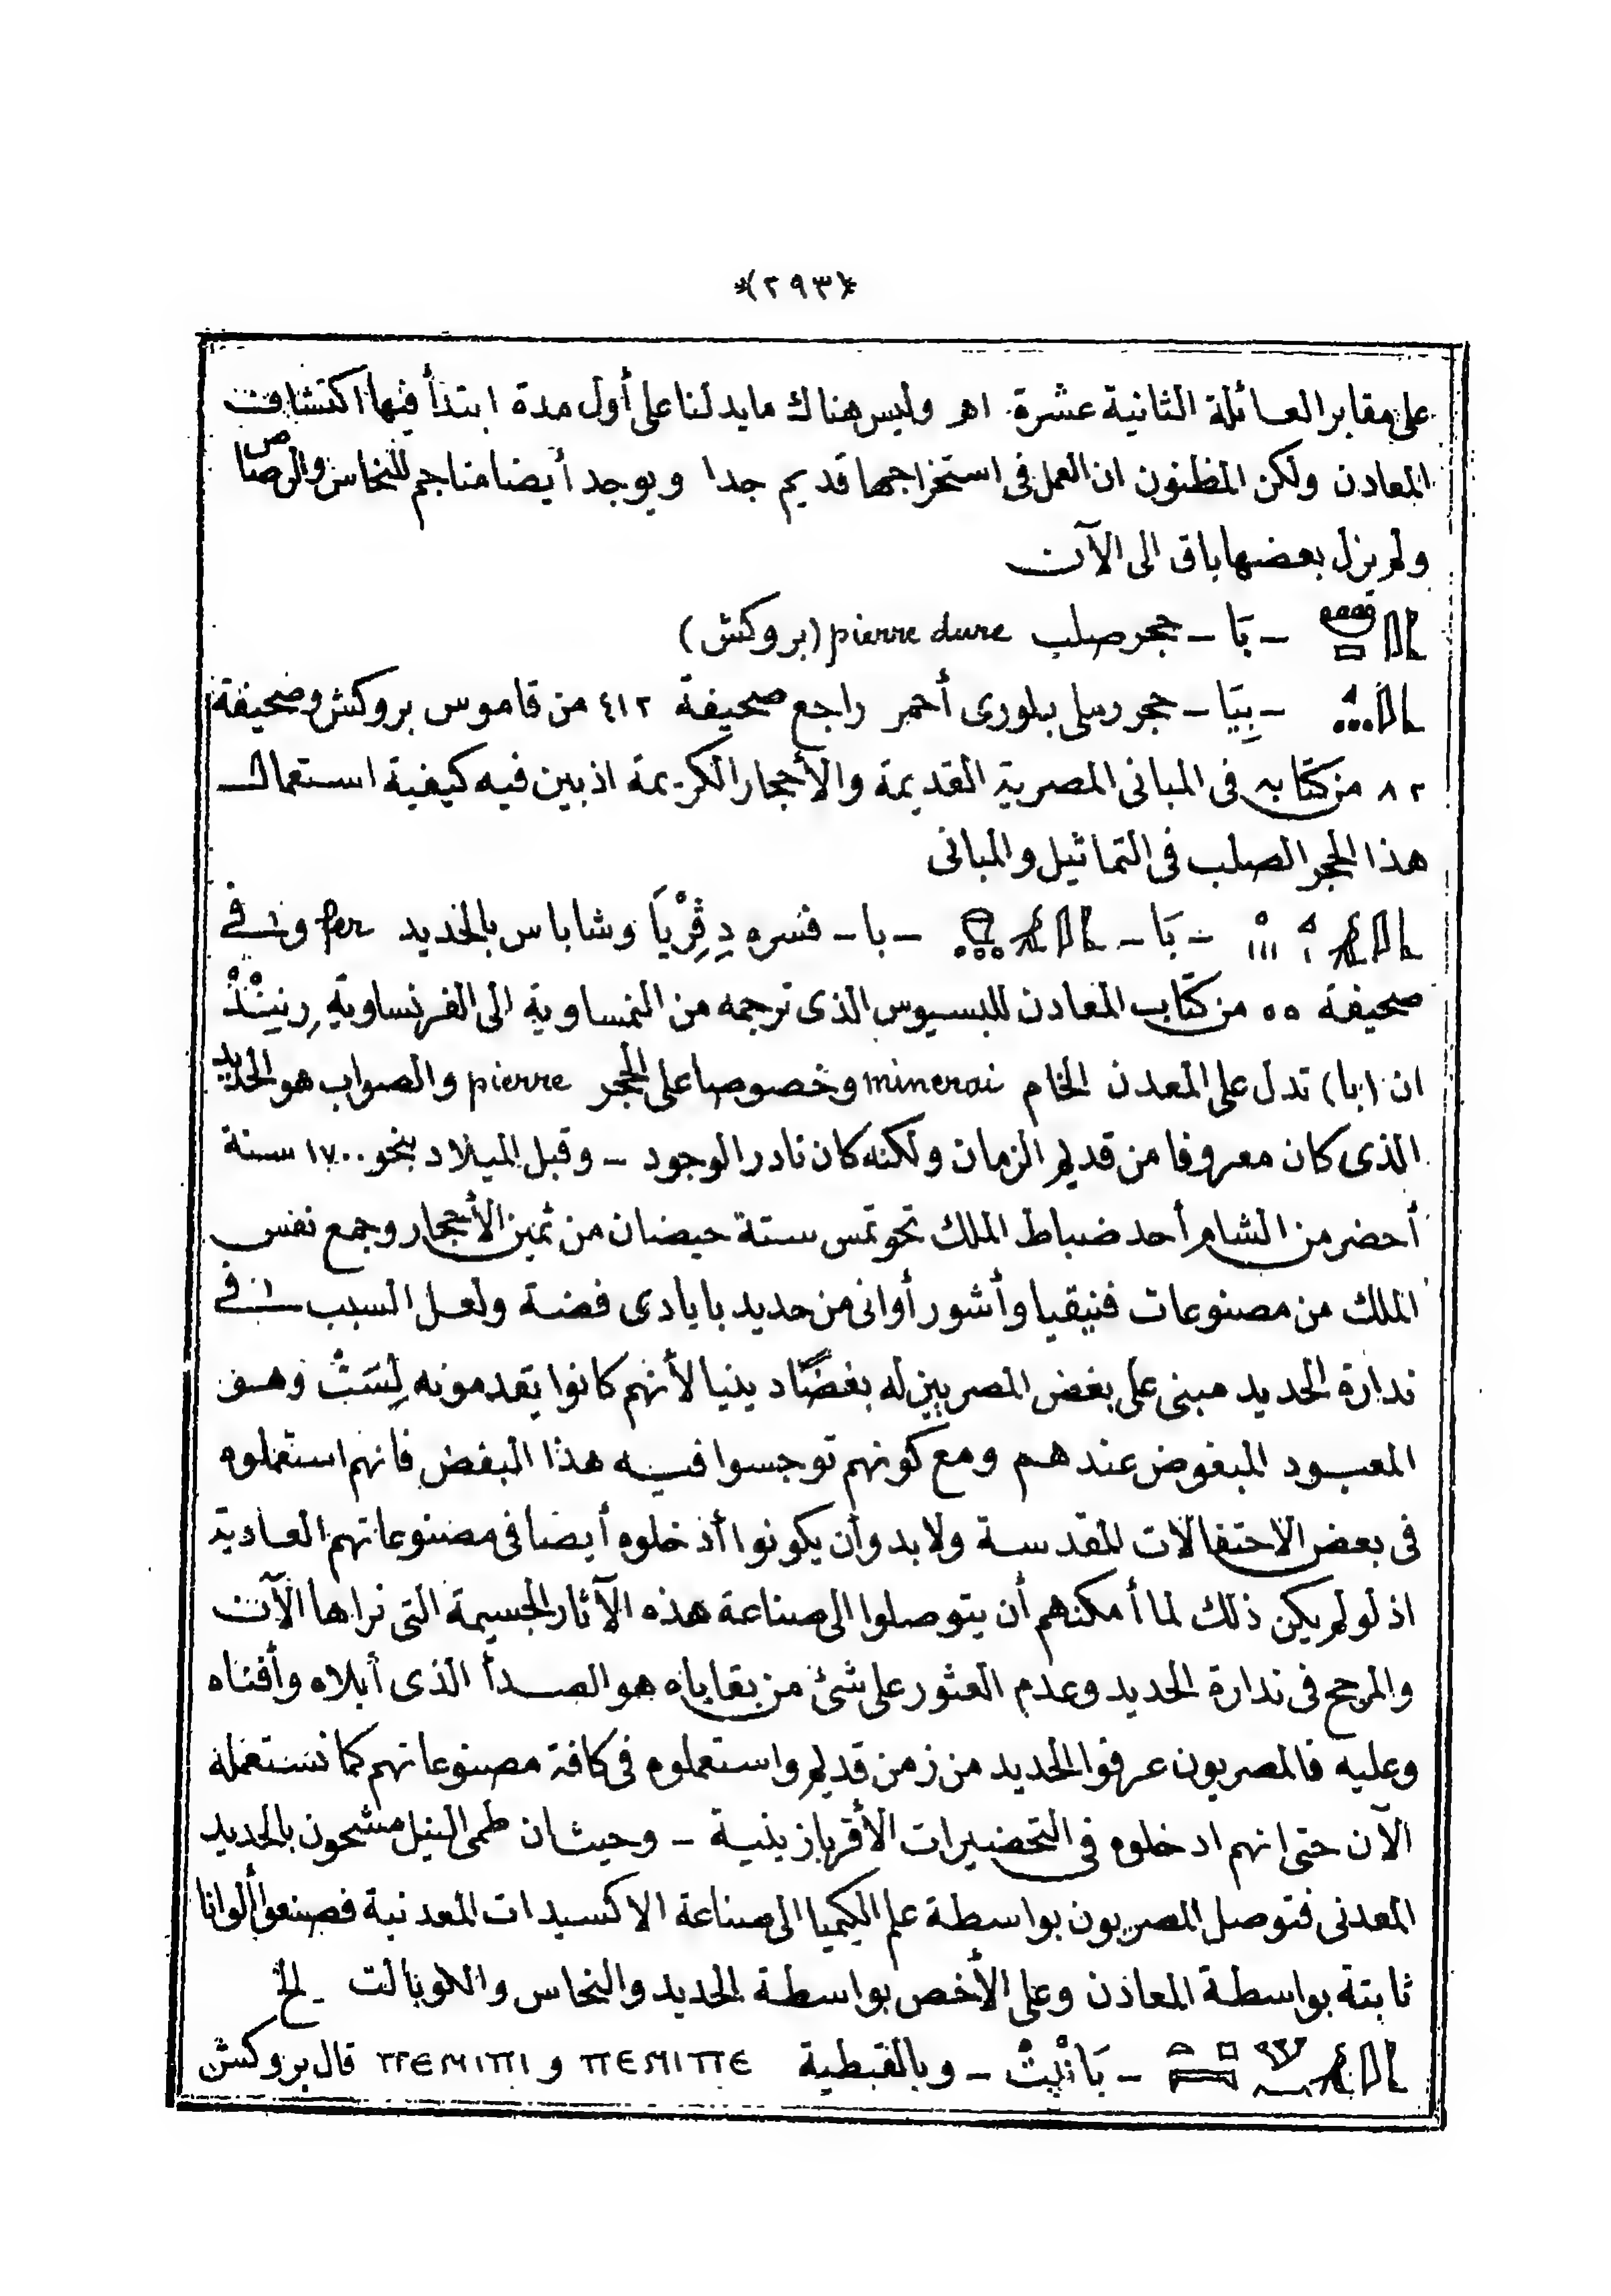 *(٢٩٣)*
على مقابر العائلة الثانية عشرة. اهر وليس هناك مايدلنا على أول مدة ابتدأ فيها اكتشاف
المعادن ولكن المظنون ان العمل فى استخراجها قديم جدا ويوجد أيضا مناجم للنحاس والرصاص
ولم يزل بعضها باق الى الآن
– بَا – حجر صلب pierre dure (بروكش)
– بِيَا – حجر رملى بلورى أحمر راجع صحيفة ٤١٢ من قاموس بروكش وصحيفة
٨٢ من كتابه فى المبانى المصرية القديمة والأحجار الكريمة اذ بين فيه كيفية استعمال
هذا الحجر الصلب فى التماثيل والمبانى
– بَا – – با – فسره دِڤِرْيَا وشاباس بالحديد fer وفى
صحيفة ٥٥ من كتاب المعادن للبسيوس الذى ترجمه من النمساوية الى الفرنساوية
ان (با) تدل على المعدن الخام minerai وخصوصا على الحجر pierre والصواب هو الحديد
الذى كان معروفا من قديم الزمان ولكنه كان نادر الوجود – وقبل الميلاد بنحو ١٧٠٠ سنة
أحضر من الشام أحد ضباط الملك تحوتمس ستة حيضان من ثمين الأحجار وجمع نفس
الملك من مصنوعات فنيقيا وأشور أوانى من حديد بايادى فضة ولعل السبب فى
ندارة الحديد مبنى على بغض المصريين له بغضًا دينيا لأنهم كانوا يقدمونه لِسَتْ وهو
المعبود المبغوض عندهم ومع كونهم توجسوا فيه هذا البغض فانهم استعملوه
فى بعض الاحتفالات المقدسة ولابد وأن يكونوا أدخلوه أيضا فى مصنوعاتهم العادية
اذ لو لم يكن ذلك لما أمكنهم أن يتوصلوا الى صناعة هذه الآثار الجسيمة التى نراها الآن
والمرجح فى ندارة الحديد وعدم العثور على شئ من بقاياه هو الصدأ الذى أبلاه وأفناه
وعليه فالمصريون عرفوا الحديد من زمن قديم واستعملوه فى كافة مصنوعاتهم كما نستعمله
الآن حتى انهم ادخلوه فى التحضيرات الأقرباذينية – وحيث ان طمى النيل مشحون بالحديد
المعدنى فتوصل المصريون بواسطة علم الكيميا الى صناعة الاكسيدات المعدنية فصنعوا ألوانا
ثابتة بواسطة المعادن وعلى الأخص بواسطة الحديد والنحاس والكوبالت الخ
– بَانْبِتْ – وبالقبطية ⲡⲉⲛⲓⲡⲉ و ⲡⲉⲛⲓⲡⲓ قال بروكش